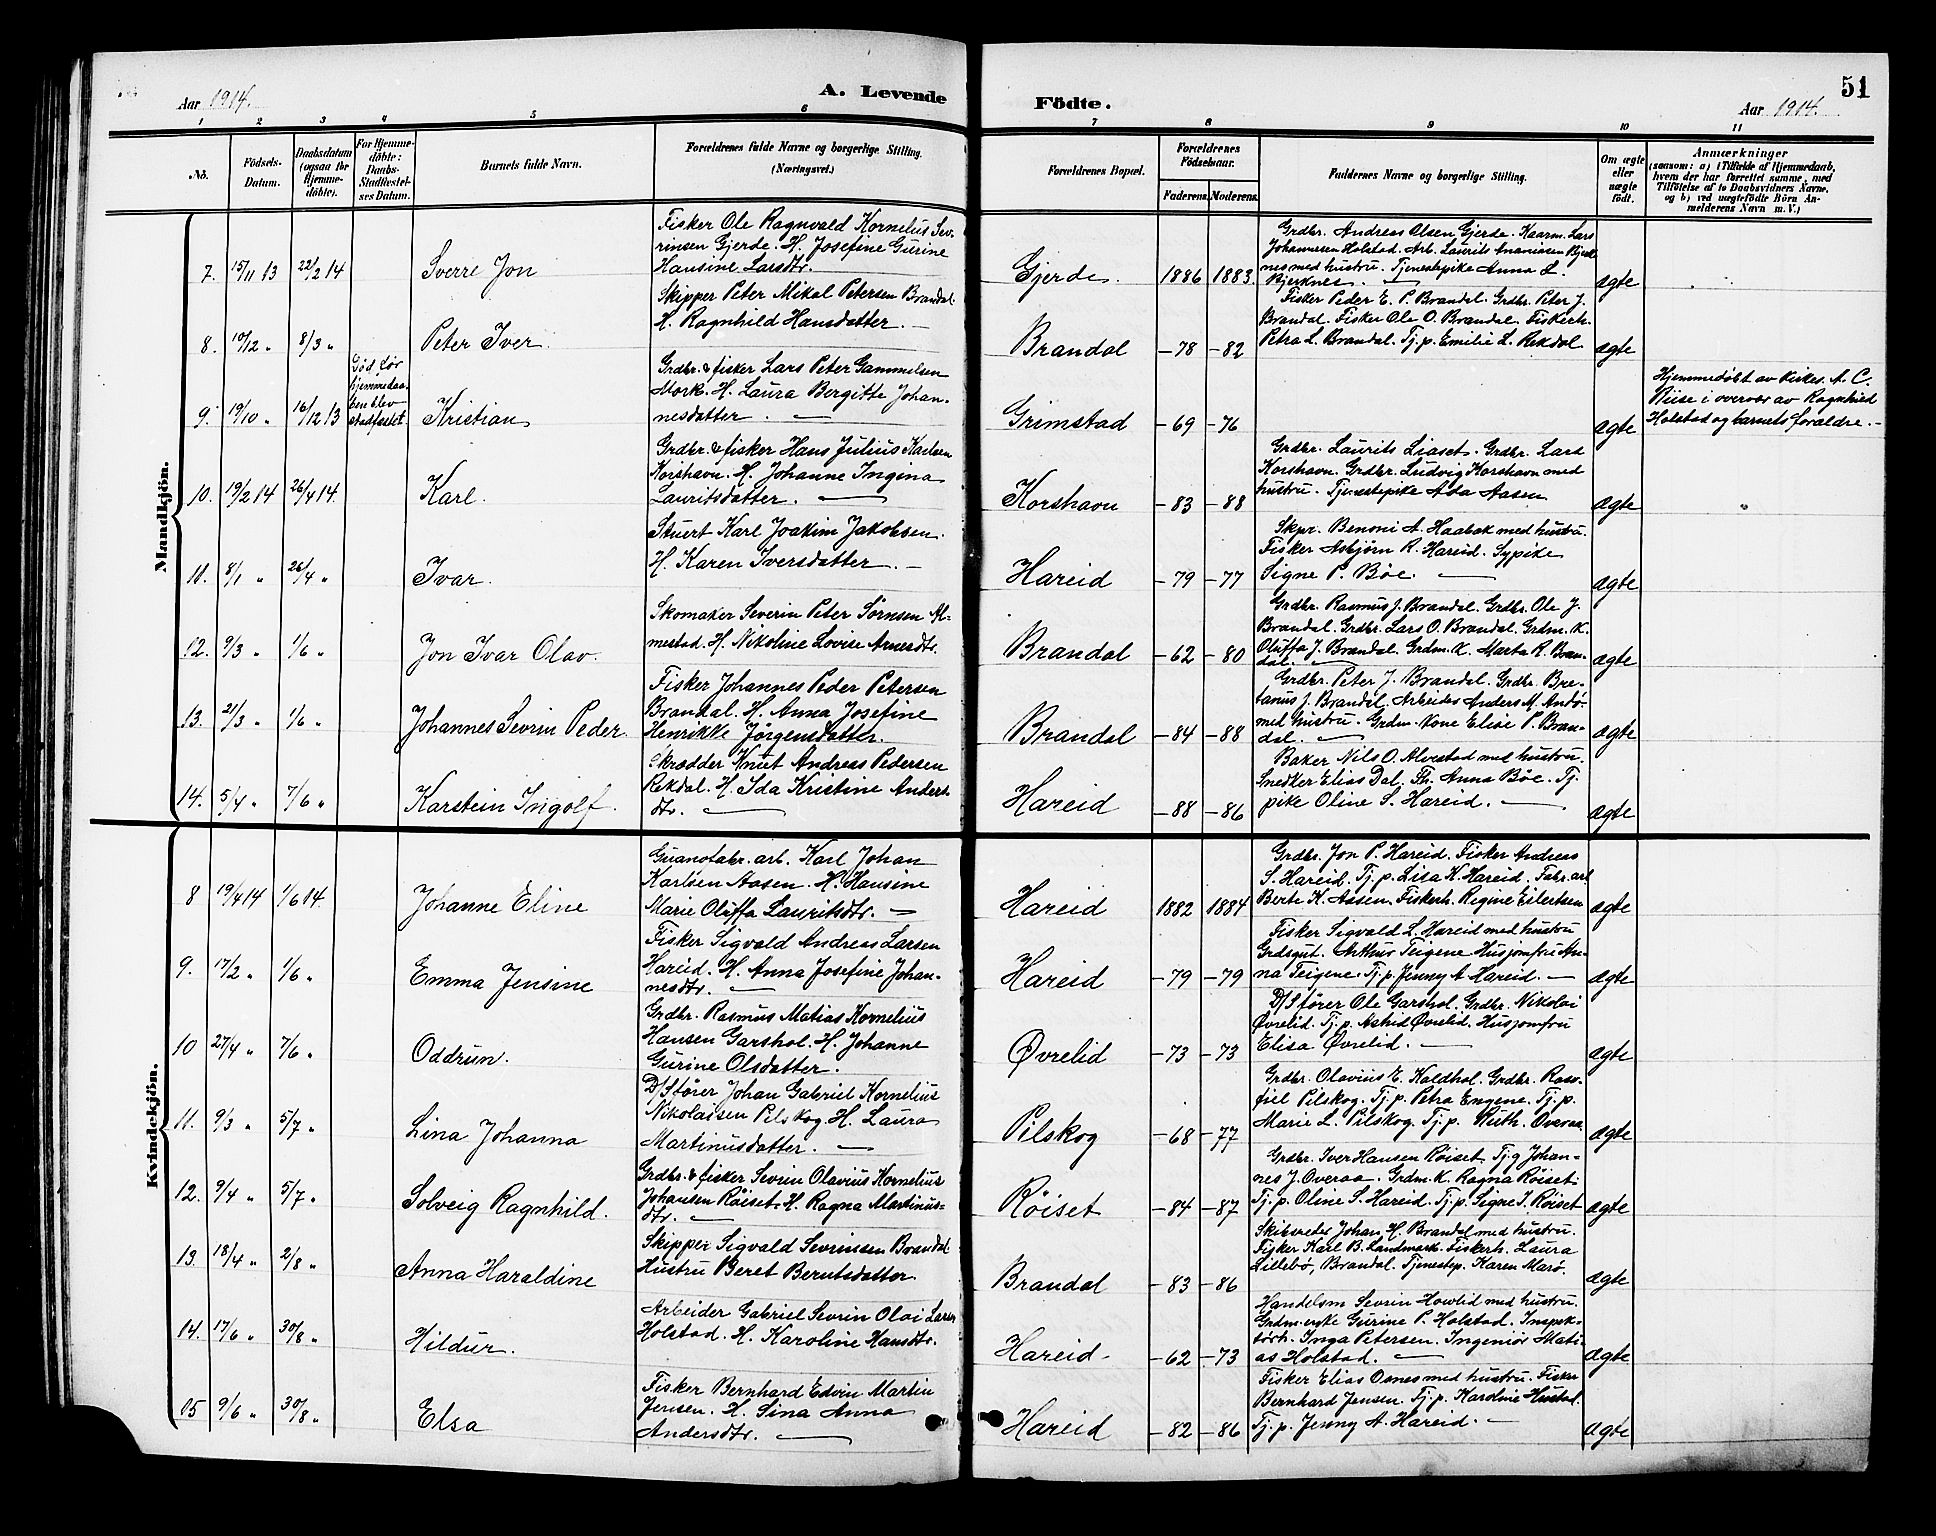 Aar 1914.
A. Levende
Födte.
51
Aar 1914.
1 2 3 4 5 6 7 8 9 10 11
No.
Födsels-
Datum.
Daabsdatum
(ogsaa for
Hjemme-
döbte).
For Hjemme-
döbte:
Daabs-
Stadfæstel-
ses Datum.
Barnets fulde Navn.
Forældrenes fulde Navne og borgerlige Stilling.
(Næringsvei.)
Forældrenes Bopæl.
Forældrenes
Födselsaar.
Faderens. Moderens.
Faddernes Navne og borgerlige Stilling.
Om ægte
eller
uægte
födt.
Anmærkninger
(saasom: a) i Tilfælde af Hjemmedaab,
hvem der har forrettet samme, med
Tilföielse af to Daabsvidners Navne,
og b) ved uægtefödte Börn An-
melderens Navn m. V.)
Mandkjön.
7. 15/11 13 22/2 14 Sverre Jon
Fisker Ole Ragnvald Kornelius Sev-
rinsen Gjerde. H. Josefine Gurine
Hansine Larsdtr.
Gjerde. 1886 1883.
Grdbr. Andreas Olsen Gjerde. Kaarm. Lars
Johannesen Holstad. Arb. Laurits Ananiasen Bjerk-
nes med hustru. Tjenestepike Anna L.
Bjerknes.
ægte
8. 10/12 " 8/3 " Peter Iver.
Skipper Peter Mikal Petersen Brandal.
H. Ragnhild Hansdatter.
Brandal -78 -82
Fisker Peder E. P. Brandal. Grdbr. Peter J.
Brandal. Fisker Ole O. Brandal. Fiskerh.
Petra L. Brandal. Tj. p. Emilie L. Rekdal
ægte
9. 19/10 " 16/12 13
hjemmedaa-
ben blev
stadfæstet.
Kristian
Grdbr. & fisker Lars Peter Gammelsen
Mork. H. Laura Bergitte Johan-
nesdatter.
Grimstad -69 -76
ægte
Hjemmedøbt av kirkes. A. C.
Riise i overvær av Ragnhild
Holstad og barnets forældre.
10. 19/2 14 26/4 14. Karl.
Grdbr. & fisker Hans Julius Karlsen
Korshavn. H. Johanne Ingina
Lauritsdatter.
Korshavn -83 -88
Grdbr. Laurits Liaset. Grdbr. Lars
Korshavn. Grdbr. Ludvig Korshavn med
hustru. Tjenestepike Ada Aasen
ægte "
11. 8/1 " 26/4 " Ivar.
Stuert Karl Joakim Jakobsen.
H. Karen Iversdatter.
Hareid -79 -77
Skpr. Benoni A. Haabak med hustru.
Fisker Asbjørn R. Hareid. Sypike
Signe P. Bøe.
ægte
12. 9/3 " 1/6 " Jon Ivar Olav.
Skomaker Severin Peter Sørnsen Al-
mestad. H. Nikoline Lovise Arnesdtr.
Brandal -62 -80
Grdbr. Rasmus J. Brandal. Grdbr. Ole J.
Brandal. Grdbr. Lars O. Brandal. Grdm. K.
Oluffa J. Brandal. Grdm. K. Marta R. Bran-
dal.
ægte
13. 2/3 " 1/6 " Johannes Sevrin Peder.
Fisker Johannes Peder Petersen
Brandal. H. Anna Josefine
Henrikke Jørgensdatter.
Brandal -84 -88
Grdbr. Peter J. Brandal. Grdbr. Bre-
tanus J. Brandal, Arbeider Anders M. Andø
med hustru. Grdm. Kone Elise P. Bran-
dal.
ægte
14. 5/4 " 7/6 " Karstein Ingolf.
Skrædder Knut Andreas Pedersen
Rekdal. H. Ida Kristine Anders-
dtr.
Hareid -88 -86
Baker Nils O. Alvestad med hustru.
Snedker Elias Dal. Th. Anna Bøe. Tj.
pike Oline S. Hareid.
ægte
Kvindekjön.
8 19/4 14 1/6 14. Johanne Eline
Guanofabr. arb. Karl Johan
Karlsen Aasen. H. Hansine
Marie Oluffa Lauritsdtr.
Hareid 1882 1884
Grdbr. Jon P. Hareid. Fisker Andreas
S. Hareid. Tj. p. Lisa K. Hareid. Fabr. arb
Berte K. Aasen. Fiskerh. Regine Eilertsen
ægte
9. 17/2 " 1/6 " Emma Jensine
Fisker Sigvald Andreas Larsen
Hareid. H. Anna Josefine Johan-
nesdtr.
Hareid -79 -79
Fisker Sigvald L. Hareid med hustru
Grdsgut. Arthur Teigene Husjomfru An-
na Teigene. Tj. p. Jenny A. Hareid.
ægte
10 27/4 " 7/6 " Oddrun.
Grdbr. Rasmus Matias Kornelius
Hansen Garshol. H. Johanne
Gurine Olsdatter.
Øvrelid -73 -73
D/Stører Ole Garshol. Grdbr. Nikolai
Øvrelid. Tj. p. Astrid Øvrelid. Husjomfru
Elisa Øvrelid.
ægte
11. 9/3 " 5/7 " Lina Johanna
D/Stører Johan Gabriel Kornelius
Nikolaisen Pilskog H. Laura
Martinusdatter.
Pilskog -68 -77
Grdbr. Olavius E. Kaldhol. Grdbr. Ras-
fiel Pilskog. Tj. p. Petra Engene. Tj. p.
Marie L. Pilskog. Tj. p. Ruth. Overaa.
ægte
12. 9/4 " 5/7 " Solveig Ragnhild.
Grdbr. & fisker Sevrin Olavius Kornelius
Johansen Røiset. H. Ragna Martinus-
dtr.
Røiset -84 -87
Grdbr. Iver Hansen Røiset. Tj. g Johan-
nes J. Overaa. Grdm. K. Ragna Røiset.
Tj. p. Oline S. Hareid. Tj. p. Signe I. Røiset
ægte
13. 18/4 " 2/8 " Anna Haraldine
Skipper Sigvald Sevrinsen Brandal
Hustru Beret Berntsdatter
Brandal -83 -86
Skibsreder Johan H. Brandal med hustru.
Fisker Karl B. Landmark. Fiskerh. Laura
Lillebø, Brandal. Tjenestep. Karen Marø.
ægte
14. 17/6 " 30/8 " Hildur.
Arbeider Gabriel Sevrin Olai Larsen
Holstad. H. Karoline Hansdtr.
Hareid -62 -73
Handelsm Sevrin Hovlid med hustru.
Grdm. enke Gurine P. Holstad. Inspek-
törh. Inga Petersen. Ingeniør Mati-
as Holstad.
ægte
15 9/6 " 30/8 " Elsa
Fisker Bernhard Edvin Martin
Jensen. H. Sina Anna
Andersdtr.
Hareid -82 -86
Fisker Elias Osnes med hustru. Fisker
Bernhard Jensen. Tj. p. Karoline Hustad.
Tj. p. Jenny A. Hareid.
ægte